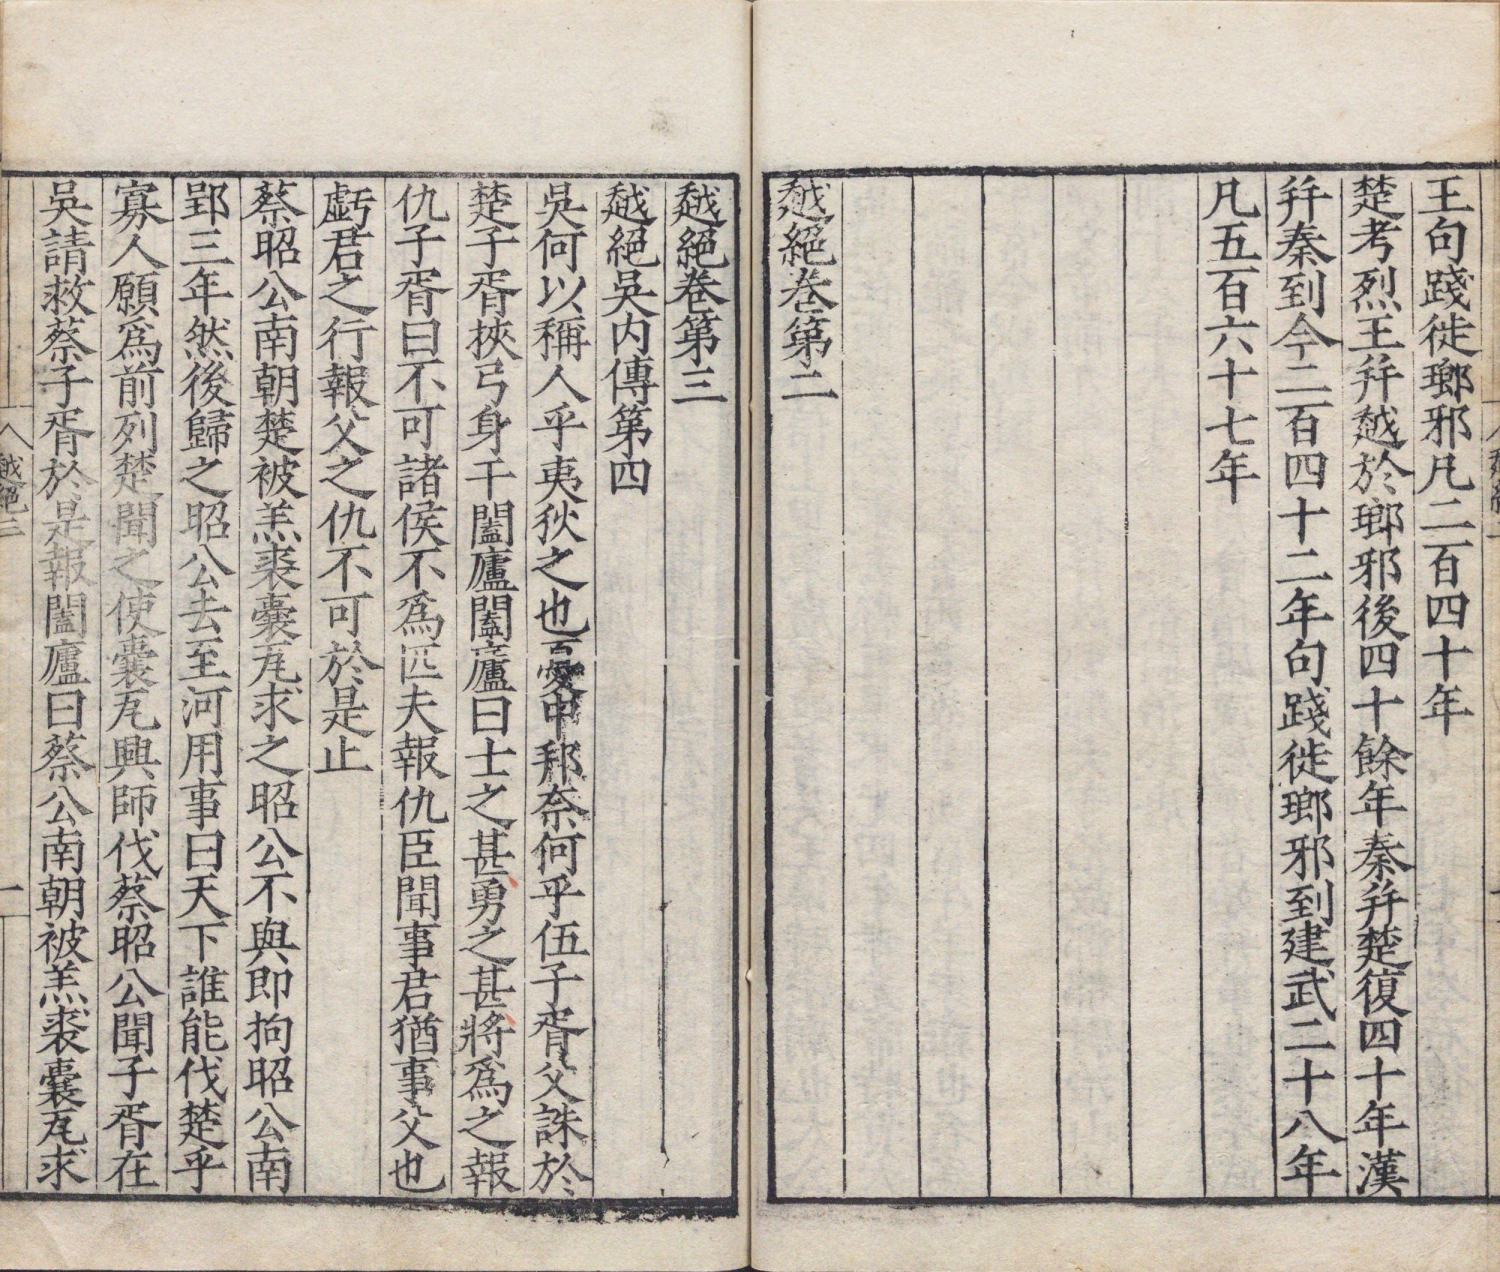 王句踐徙瑯邪凡二百四十年
楚考烈王幷越於瑯邪後四十餘年秦幷楚復四十年漢
幷秦到今二百四十二年句踐徙瑯邪到建武二十八年
凡五百六十七年
越絕卷第二
越絕卷第三
越絕吳内傳第四
吳何以稱人乎夷狄之也憂中邦奈何乎伍子胥父誅於
楚子胥挾弓身干闔廬闔廬曰士之甚勇之甚將爲之報
仇子胥曰不可諸侯不爲匹夫報仇臣聞事君猶事父也
虧君之行報父之仇不可於是止
蔡昭公南朝楚被羔裘囊瓦求之昭公不與即拘昭公南
郢三年然後歸之昭公去至河用事曰天下誰能伐楚乎
寡人願爲前列楚聞之使囊瓦興師伐蔡昭公聞子胥在
吳請救蔡子胥於是報闔廬曰蔡公南朝被羔裘囊瓦求
越絕三
一